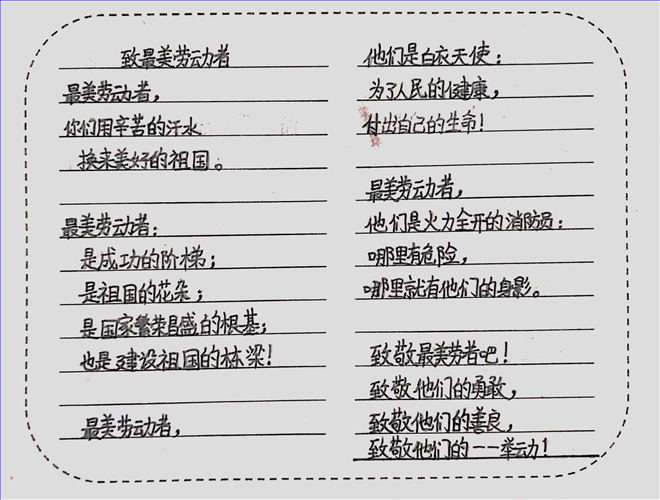 致最美劳动者
最美劳动者，
你们用辛苦的汗水
换来美好的祖国。
最美劳动者：
是成功的阶梯；
是祖国的花朵；
是国家繁荣昌盛的根基；
也是建设祖国的栋梁！
最美劳动者，
他们是白衣天使：
为了人民的健康，
付出自己的生命！
最美劳动者，
他们是火力全开的消防员：
哪里有危险，
哪里就有他们的身影。
致敬最美劳者吧！
致敬他们的勇敢，
致敬他们的善良，
致敬他们的一一举动！